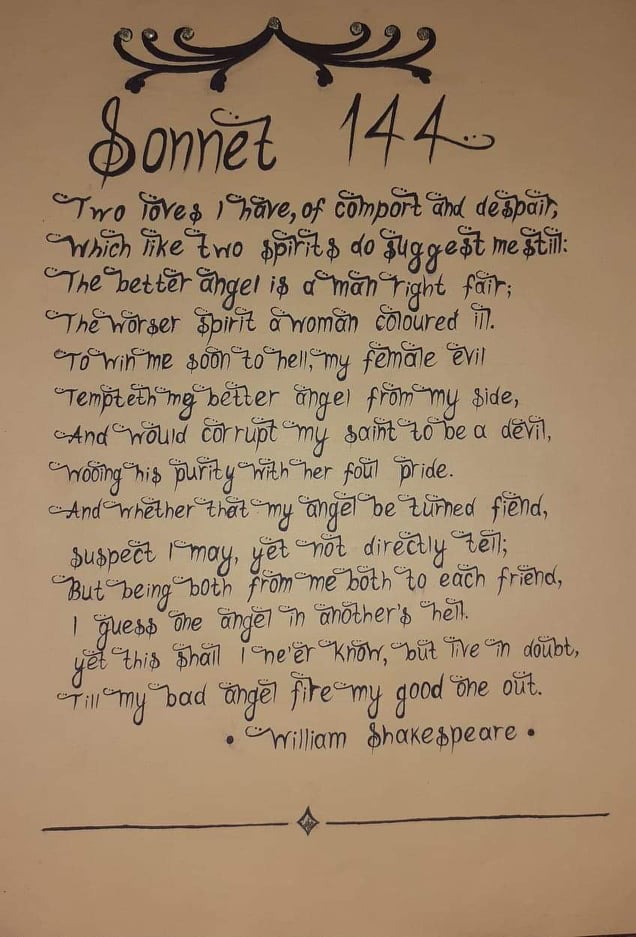 Sonnet 144
Two loves I have, of comfort and despair,
Which like two spirits do suggest me still:
The better angel is a man right fair;
The worser spirit a woman coloured ill.
To win me soon to hell, my female evil
Tempteth my better angel from my side,
And would corrupt my saint to be a devil,
Wooing his purity with her foul pride.
And whether that my angel be turned fiend,
suspect I may, yet not directly tell;
But being both from me both to each friend,
I guess one angel in another's hell.
yet this shall I ne'er know, but live in doubt,
Till my bad angel fire my good one out.
• William Shakespeare •